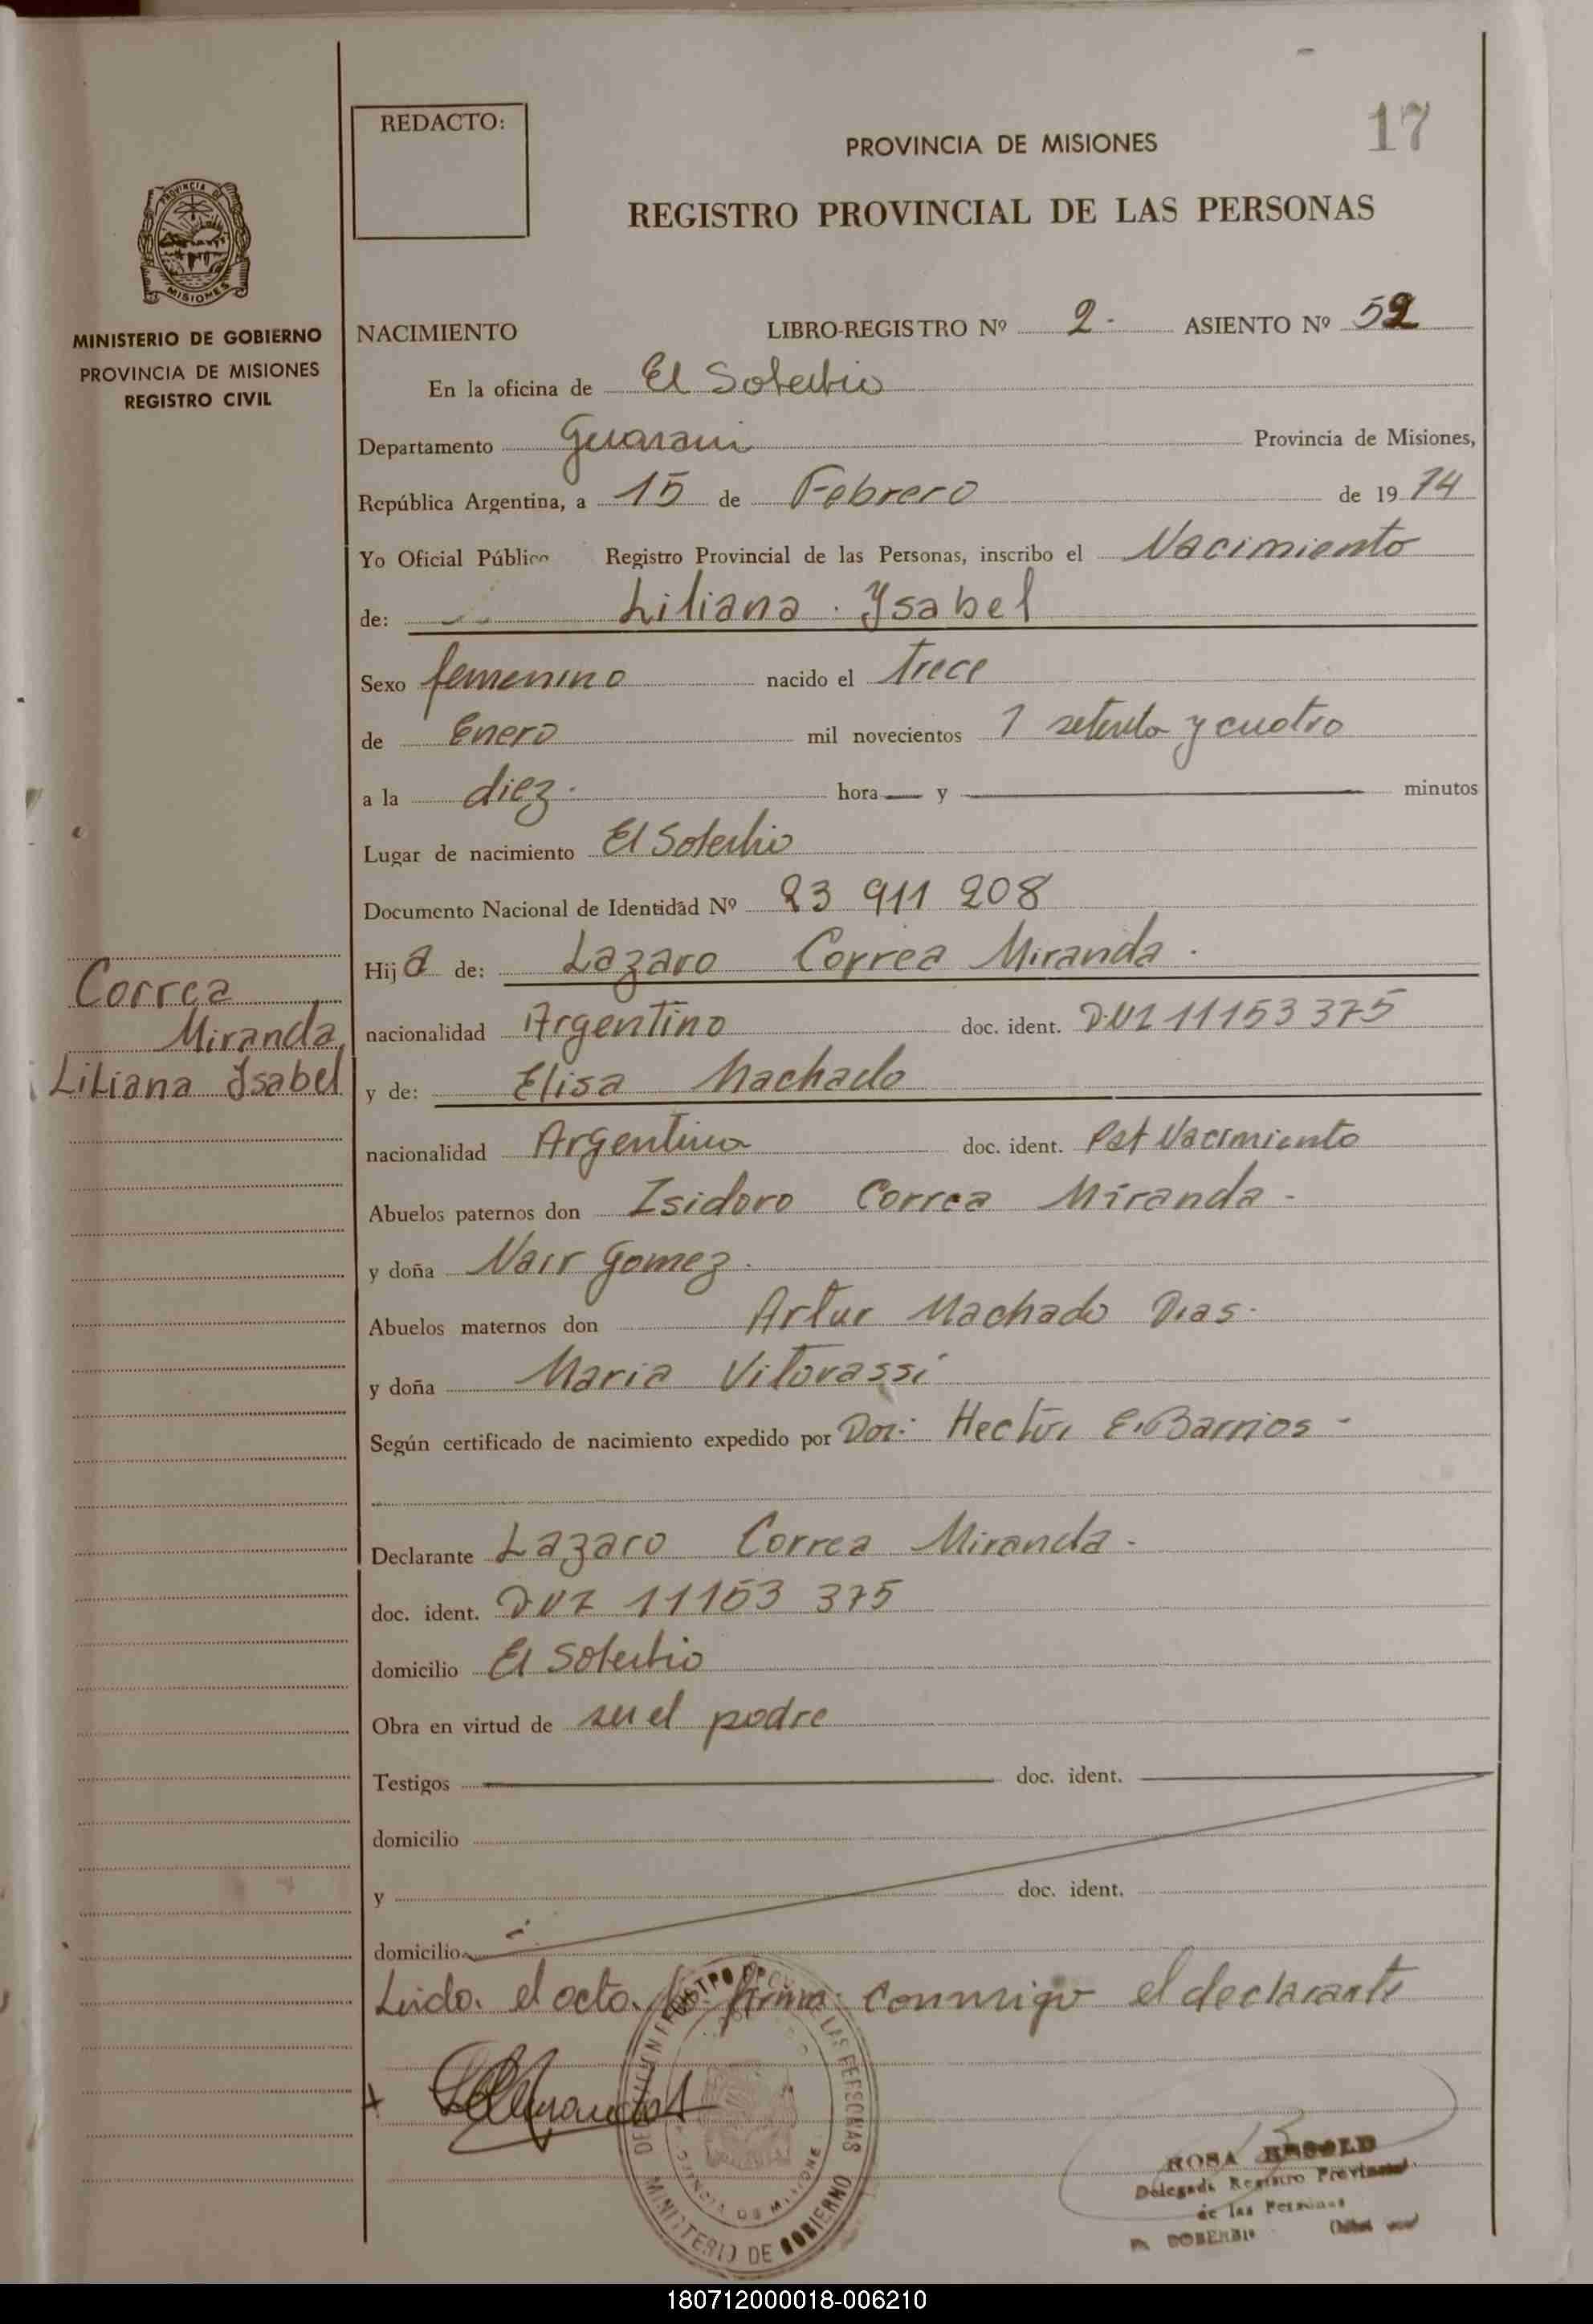 REDACTO:
17
PROVINCIA DE MISIONES
REGISTRO PROVINCIAL DE LAS PERSONAS
PROVINCIA DE
MISIONES
MINISTERIO DE GOBIERNO
PROVINCIA DE MISIONES
REGISTRO CIVIL
NACIMIENTO LIBRO-REGISTRO Nº 2- ASIENTO Nº 52
En la oficina de El Soberbio
Departamento Guarani Provincia de Misiones,
República Argentina, a 15 de Febrero de 1974
Yo Oficial Público Registro Provincial de las Personas, inscribo el Nacimiento
de: Liliana Ysabel
Sexo femenino nacido el trece
de Enero mil novecientos setenta y cuatro
a la diez. hora y minutos
Lugar de nacimiento El Soberbio
Documento Nacional de Identidad Nº 23 911 208
Hija de: Lazaro Correa Miranda.
nacionalidad Argentino doc. ident. DNI 11153 375
y de: Elisa Machado
nacionalidad Argentina doc. ident. Nacimiento
Abuelos paternos don Isidoro Correa Miranda-
y doña Nair Gomez.
Abuelos maternos don Artur Machado Dias-
y doña Maria Vitorassi
Según certificado de nacimiento expedido por Hector E. Barrios-
Correa
Miranda
Liliana Ysabel
Declarante Lazaro Correa Miranda-
doc. ident. DNI 11153 375
domicilio El Soberbio
Obra en virtud de ser el padre
Testigos doc. ident.
domicilio
y doc. ident.
domicilio
Leido el acto lo firma conmigo el declarante
DE LAS PERSONAS
MINISTERIO DE GOBIERNO
ROSA
Delegada Registro Provincial
de las Personas
SOBERBIO
180712000018-006210